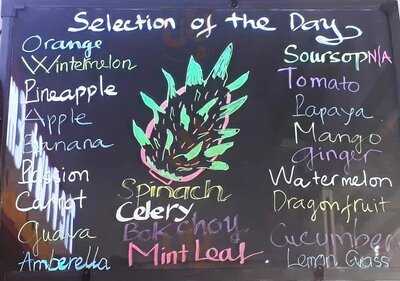 Selection of the Day
Orange
Wintermelon
Pineapple
Apple
Banana
Passion
Carrot
Guava
Ambarella
Spinach
Celery
Bok Choy
Mint Leaf.
Soursop N/A
Tomato
Papaya
Mango
Ginger
Watermelon
Dragonfruit
Cucumber
Lemon Grass